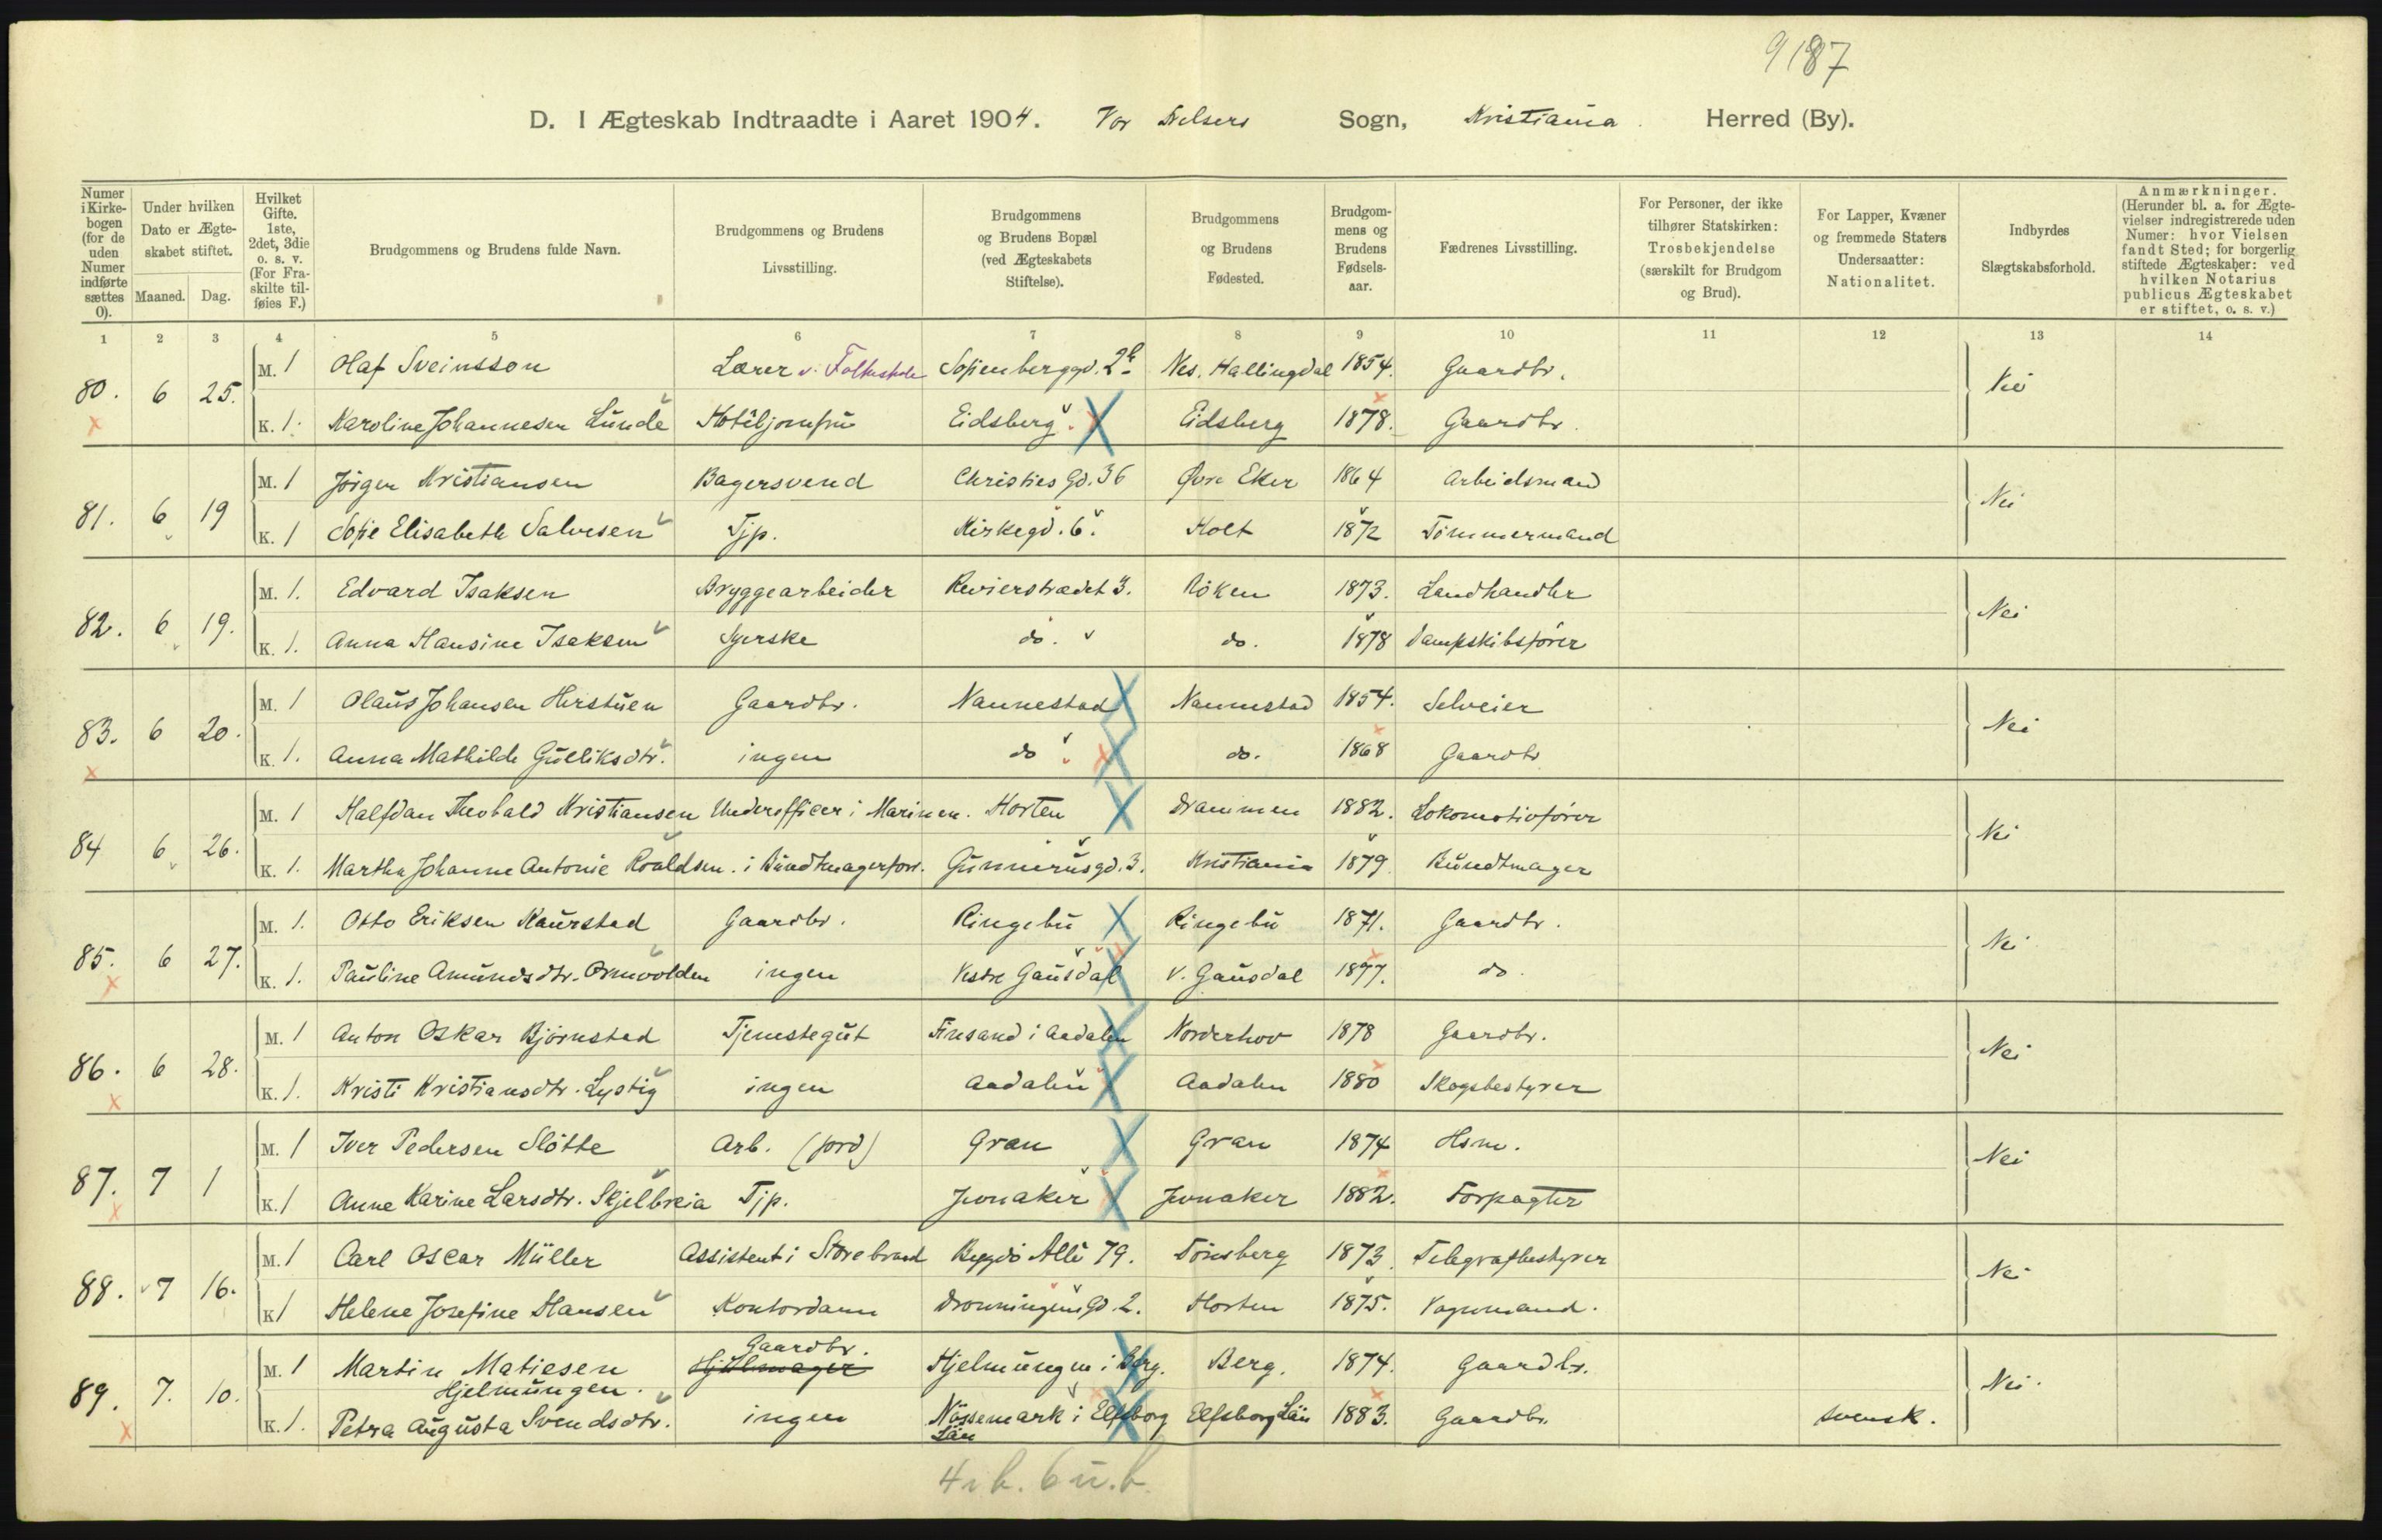 9187
D. I Ægteskab Indtraadte i Aaret 1904. Vor Frelsers Sogn, Kristiania Herred (By).
Numer i Kirkebogen (for de uden Numer indførte sættes 0). Under hvilken Dato er Ægteskabet stiftet. Maaned. Dag. Hvilket Gifte. 1ste, 2det, 3die o. s. v. (For Fraskilte tilføies F.) Brudgommens og Brudens fulde Navn. Brudgommens og Brudens Livsstilling. Brudgommens og Brudens Bopæl (ved Ægteskabets Stiftelse). Brudgommens og Brudens Fødested. Brudgommens og Brudens Fødselsaar. Fædrenes Livsstilling. For Personer, der ikke tilhører Statskirken: Trosbekjendelse (særskilt for Brudgom og Brud). For Lapper, Kvæner og fremmede Staters Undersaatter: Nationalitet. Indbyrdes Slægtskabsforhold. Anmærkninger. (Herunder bl. a. for Ægtevielser indregistrerede uden Numer: hvor Vielsen fandt Sted; for borgerlig stiftede Ægteskaber: ved hvilken Notarius publicus Ægteskabet er stiftet, o. s. v.)
1 2 3 4 5 6 7 8 9 10 11 12 13 14
80. 6 25. M. 1 Olaf Sveinsson Lærer v. Folkeskole Sofienberggd. 2b Nes. Hallingdal 1854. Gaardbr. Nei
K. 1. Karoline Johannesen Lunde Hoteljomfru Eidsberg. Eidsberg 1878. Gaardbr.
81. 6 19 M. 1 Jörgen Kristiansen Bagersvend Christies Gd. 36 Øvre Eker 1864 Arbeidsmand Nei
K. 1 Sofie Elisabeth Salvesen Tjp. Kirkegd. 6. Holt 1872 Tömmermand
82. 6 19. M. 1. Edvard Isaksen Bryggearbeider Revierstrædet 3. Röken 1873. Landhandler Nei
K. 1. Anna Hansine Isaksen Syerske do. do. 1878 Dampskibsförer
83. 6 20. M. 1 Olaus Johansen Herstuen Gaardbr. Nannestad Nannestad 1854. Selveier Nei
K. 1. Anna Mathilde Gulliksdtr. ingen do. do. 1868 Gaardbr
84 6 26. M. 1 Halfdan Theobald Kristiansen Underofficer i Marinen. Horten Drammen 1882. Lokomotivförer Nei
K. 1. Martha Johanne Antonie Roaldsen. i Bundtmagerforr. Gunnerusgd. 3. Kristiania 1879. Bundtmager
85. 6 27. M. 1. Otto Eriksen Kaurstad Gaardbr. Ringebu Ringebu 1871. Gaardbr. Nei
K. 1. Pauline Amundsdtr. Ormvolden ingen Vestre Gausdal V. Gausdal 1877. do.
86. 6 28. M. 1 Anton Oskar Björnstad Tjenestegut Finsand i Aadalen Norderhov 1878 Gaardbr. Nei
K. 1. Kristi Kristiansdtr. Lystig ingen Aadalen Aadalen 1880 Skogsbestyrer
87. 7 1 M. 1 Iver Pedersen Slötte Arb. (jord) Gran Gran 1874 Hsm. Nei
K. 1 Anne Karine Larsdtr. Skjelbreia Tjp. Jevnaker Jevnaker 1882. Forpagter
88. 7 16. M. 1 Carl Oscar Müller Assistent i Storebrand Bygdö Alle 79. Tönsberg 1873. Telegrafbestyrer Nei
K 1 Helene Josefine Hansen Kontordame Dronningens Gd 2. Horten 1875. Vognmand.
89. 7. 10. M. 1 Martin Matiesen Hjelmungen. Gaardbr. Hjulmager Hjelmungen i Berg. Berg. 1874. Gaardbr. Nei.
K. 1. Petra Augusta Svendsdtr. ingen Nössemark i Elfsborg Län Elfsborg Län 1883. Gaardbr. svensk.
4 i b. 6 u. b.